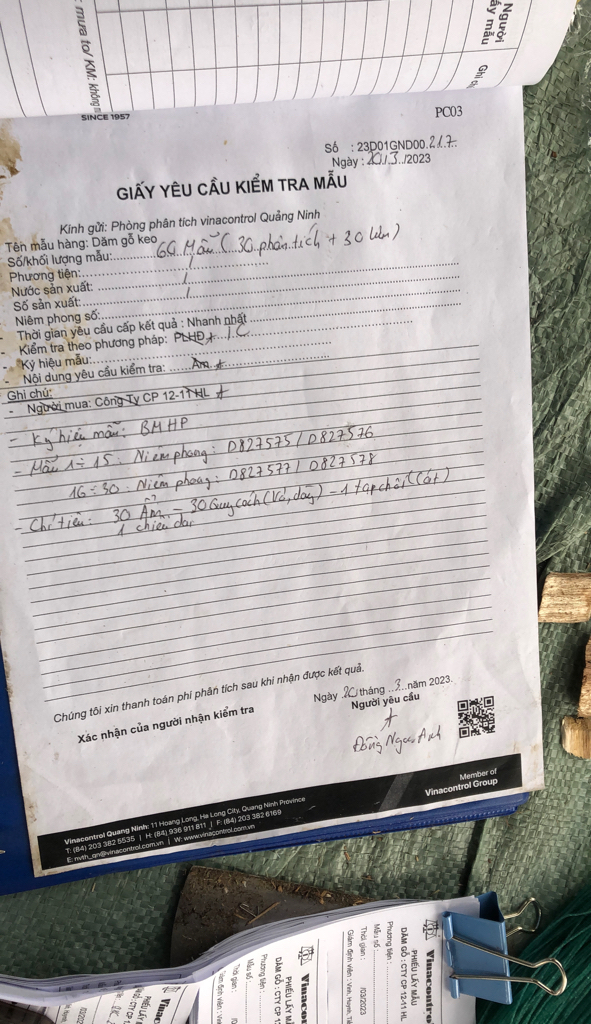 Người
lấy mẫu
Ghi
mưa to/ KM: không
SINCE 1957
PC03
Số : 23D01GND00.217.
Ngày : 20/3../2023
GIẤY YÊU CẦU KIỂM TRA MẪU
Kính gửi: Phòng phân tích vinacontrol Quảng Ninh
Tên mẫu hàng: Dăm gỗ keo
Số/khối lượng mẫu: 60 Mẫu (30 phân tích + 30 lưu)
Phương tiện: /
Nước sản xuất: /
Số sản xuất: /
Niêm phong số:
Thời gian yêu cầu cấp kết quả : Nhanh nhất
- Kiểm tra theo phương pháp: PLHĐ
- Ký hiệu mẫu:
- Nội dung yêu cầu kiểm tra: Ẩm
Ghi chú:
- Người mua: Công Ty CP 12-11 HL
- Ký hiệu mẫu: BMHP
- Mẫu 1÷15: Niêm phong: D827575/D827576
16÷30: Niêm phong: D827577/D827578
- Chỉ tiêu: 30 Ẩm - 30 Quy cách (Vỏ, dăm) - 1 tạp chất (cát)
1 chiều dài
Chúng tôi xin thanh toán phí phân tích sau khi nhận được kết quả.
Ngày 20 tháng 3 năm 2023.
Xác nhận của người nhận kiểm tra
Người yêu cầu
Đồng Ngọc Anh
Member of
Vinacontrol Group
Vinacontrol Quang Ninh: 11 Hoang Long, Ha Long City, Quang Ninh Province
T: (84) 203 382 5535 | H: (84) 936 911 811 | F: (84) 203 382 6169
E: nvth_qn@vinacontrol.com.vn | W: www.vinacontrol.com.vn
Vinacontro
PHIẾU LẤY MẪU
DĂM GỖ : CTY CP 12-11 HL
Phương tiện :
Mẫu số :
Thời gian : /03/2023
Giám định viên : Vinh, Huynh, Tà
Vinacon
PHIẾU LẤY MẪU
DĂM GỖ : CTY CP 1
Phương tiện :
Mẫu số :
Thời gian :